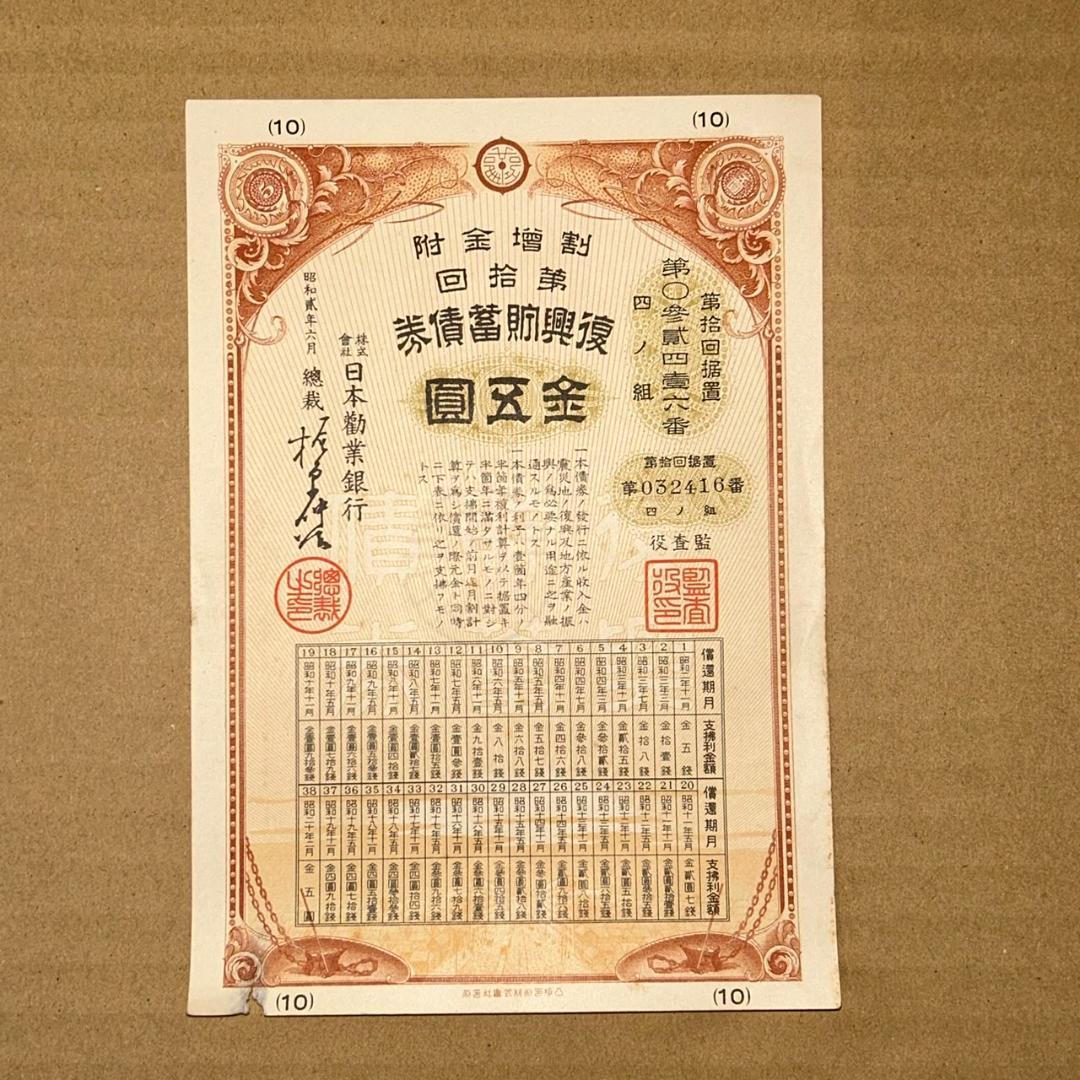 (10)
(10)
割增金附
第拾回
復興貯蓄債券
金五圓
第拾回据置
第〇參貳四壹六番
四ノ組
第拾回据置
第032416番
四ノ組
監査役
監査役印
一本債券ノ發行ニ依ル收入金ハ
震災地ノ復興及地方産業ノ振
興ノ爲必要ナル用途ニ之ヲ融
通スルモノトス
一本債券ノ利子ハ壹箇年四分ノ
半箇年複利計算ヲ以テ据置キ
半箇年ニ滿タサルモノニ對シ
テハ支拂開始ノ前月迄月割計
算ヲ爲シ償還ノ際元金ト同時
ニ下表ニ依リ之ヲ支拂フモノ
トス
株式會社日本勸業銀行
總裁
昭和貳年六月
總裁之印
償還期月 支拂利金額
1 昭和二年十一月 金五錢
2 昭和三年三月 金拾壹錢
3 昭和三年七月 金拾八錢
4 昭和三年十一月 金貳拾五錢
5 昭和四年三月 金參拾貳錢
6 昭和四年七月 金參拾八錢
7 昭和四年十一月 金四拾六錢
8 昭和五年五月 金五拾七錢
9 昭和五年十一月 金六拾八錢
10 昭和六年五月 金八拾錢
11 昭和六年十一月 金九拾壹錢
12 昭和七年五月 金壹圓參錢
13 昭和七年十一月 金壹圓拾五錢
14 昭和八年五月 金壹圓貳拾七錢
15 昭和八年十一月 金壹圓四拾錢
16 昭和九年五月 金壹圓五拾參錢
17 昭和九年十一月 金壹圓六拾六錢
18 昭和十年五月 金壹圓七拾九錢
19 昭和十年十一月 金壹圓九拾參錢
償還期月 支拂利金額
20 昭和十一年五月 金貳圓七錢
21 昭和十一年十一月 金貳圓貳拾壹錢
22 昭和十二年五月 金貳圓參拾五錢
23 昭和十二年十一月 金貳圓五拾錢
24 昭和十三年五月 金貳圓六拾五錢
25 昭和十三年十一月 金貳圓八拾錢
26 昭和十四年五月 金貳圓九拾六錢
27 昭和十四年十一月 金參圓拾貳錢
28 昭和十五年五月 金參圓貳拾八錢
29 昭和十五年十一月 金參圓四拾五錢
30 昭和十六年五月 金參圓六拾貳錢
31 昭和十六年十一月 金參圓七拾九錢
32 昭和十七年五月 金參圓九拾六錢
33 昭和十七年十一月 金四圓拾四錢
34 昭和十八年五月 金四圓參拾參錢
35 昭和十八年十一月 金四圓五拾壹錢
36 昭和十九年五月 金四圓七拾錢
37 昭和十九年十一月 金四圓九拾錢
38 昭和二十年二月 金五圓
(10)
(10)